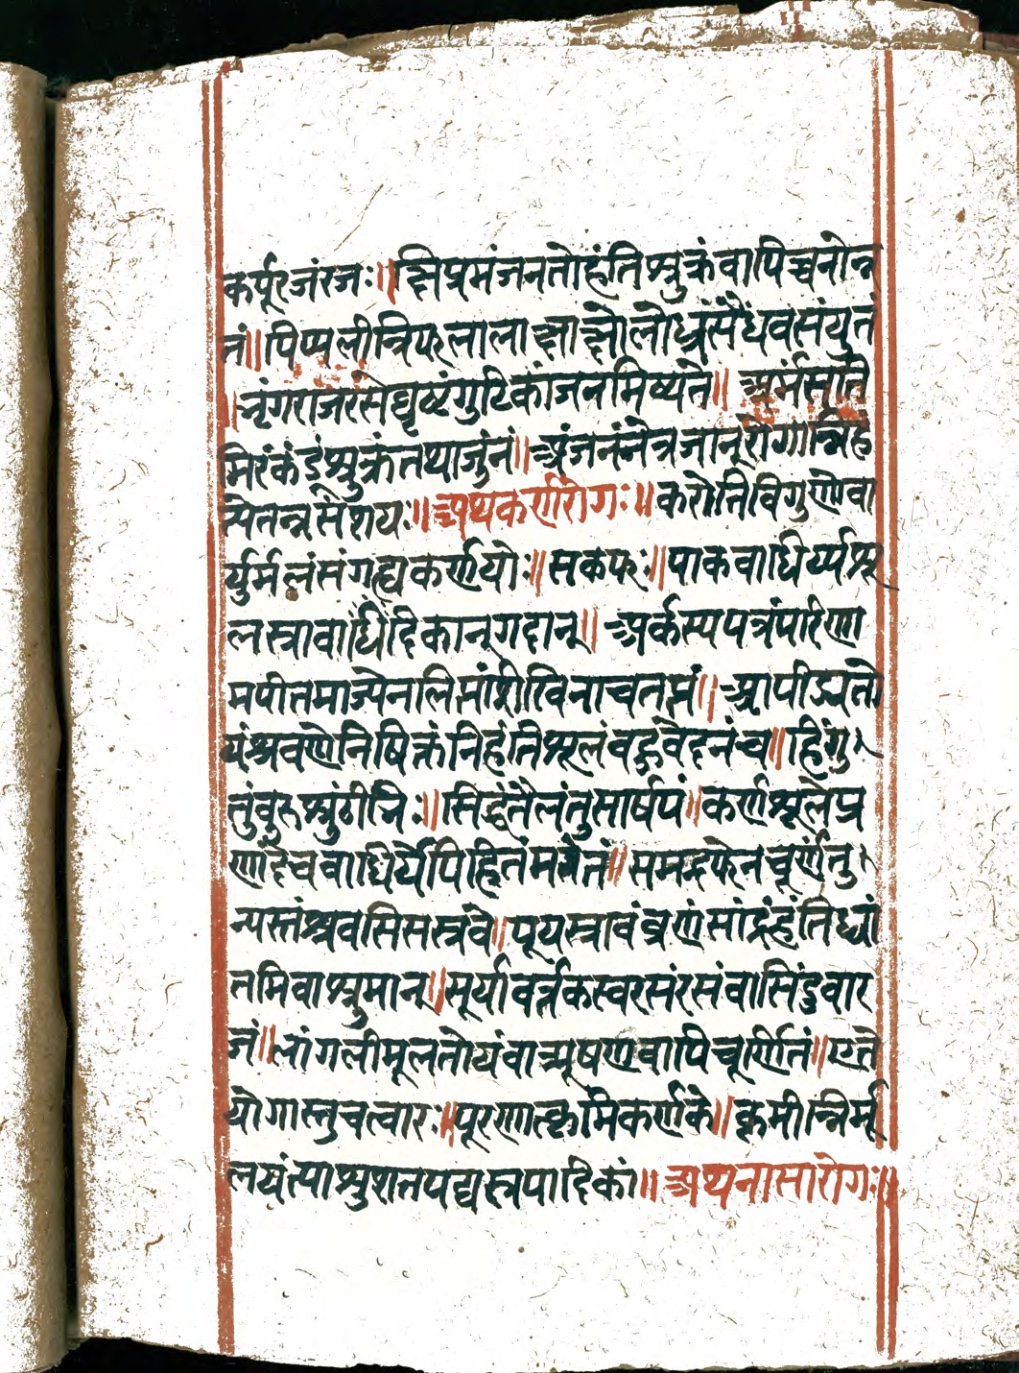 कर्पूरजंरजः॥क्षिप्रमंजनतोहंतिश्रुक्रंवापिच्चनोन्न
तं॥पिप्पलीत्रिफलालाक्षाक्षौलोध्रंसैंधवसंयुतं
॥नृंगराजरसेघृष्टंगुटिकांजनमिष्यते॥अर्मसति
मिरंकंडुंश्रुक्रंतथार्जुनं॥अंजनंनेत्रजान्रोगान्निहं
त्पेतन्नसंशयः॥अथकर्णरोगः॥करोतिविगुणोवा
र्युर्मलंसंगृह्यकर्णयोः॥सकफः॥पाकवाधिर्य्यश्रू
लस्त्रावाधिंदिकान्गदान्॥अर्कस्यपत्रंपरिणा
मपीतमाज्येनलिप्तांशीखिनाचतप्तं॥आपीड्यतो
यंश्रवणेनिषिक्तंनिहंतिश्रूलंवद्रुवेदनंच॥हिंगु
तुंवुरुश्रुंठीनिः॥सिद्धंतैलंतुसार्षपं॥कर्णश्रूलेप्र
णादेचवाधिर्येपिहितंमतेतं॥समद्रफेनचूर्णंतु
न्यस्तंश्रवसिसस्त्रवे॥पूयस्त्रावंव्रणंसांद्रंहंतिध्यां
तमिवाश्रुमान्॥सूर्यावर्त्तकस्वरसंरसंवासिंदुवार
जं॥लांगलीमूलतोयंवात्र्यूषणंवापिचूर्णितं॥एते
योगास्तुचत्वारः॥पूरणात्कृमिकर्णके॥कृमीन्निर्मू
लयंत्याश्रुशतपद्यस्त्रपादिकां॥अथनासारोगः॥